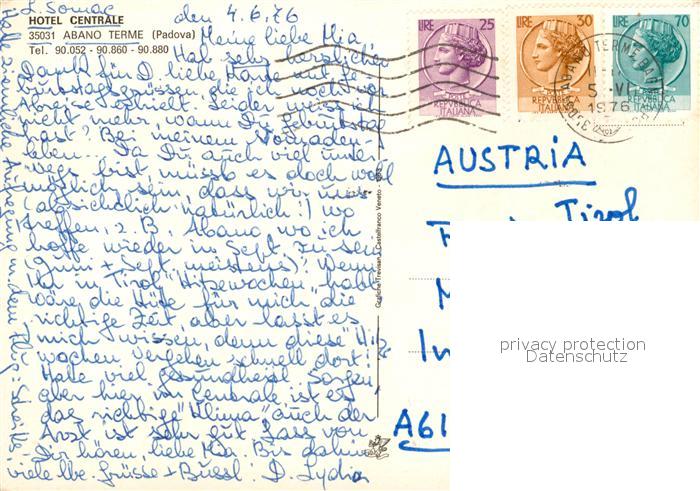 HOTEL CENTRALE
35031 ABANO TERME (Padova)
Tel. 90.052 - 90.860 - 90.880
den 4.6.76
Meine liebe Mia
Hab sehr herzlichen
Dank für D. liebe Karte mit Ge-
burtstagsgrüssen die ich noch vor
Abreise erhielt. Leider weiss ich
nicht mehr, wann Du Geburtstag
hast? Bei meinem Nomaden-
leben... Da Du auch viel unter-
wegs bist müsste es doch wohl
möglich sein, dass wir uns
(absichtlich natürlich!) wo
treffen, z.B. Abano, wo ich
hoffe wieder im Sept. zu sein
(Juni + Sept. meistens). Wenn
Ihr in Tirol "Hitzewochen" habt,
wäre die Hütte für mich die
richtige Zeit, aber lasst es
mich wissen, denn diese Hitz-
wochen vergehen schnell dort!
Hatte viel gesundheitl. Sorgen,
aber hier im Centrale ist es
das richtige "Klima" auch der
Arzt ist sehr gut. Lass von
Dir hören, liebe Mia. Bis dahin
viele lbe. Grüsse + Bussl. D. Lydia
LIRE 25
REPVBBLICA
ITALIANA
LIRE 30
REPVBBLICA
ITALIANA
LIRE 70
REPVBBLICA
ITALIANA
ABANO TERME
5 VI
1976
AUSTRIA
Tirol
A61
privacy protection
Datenschutz